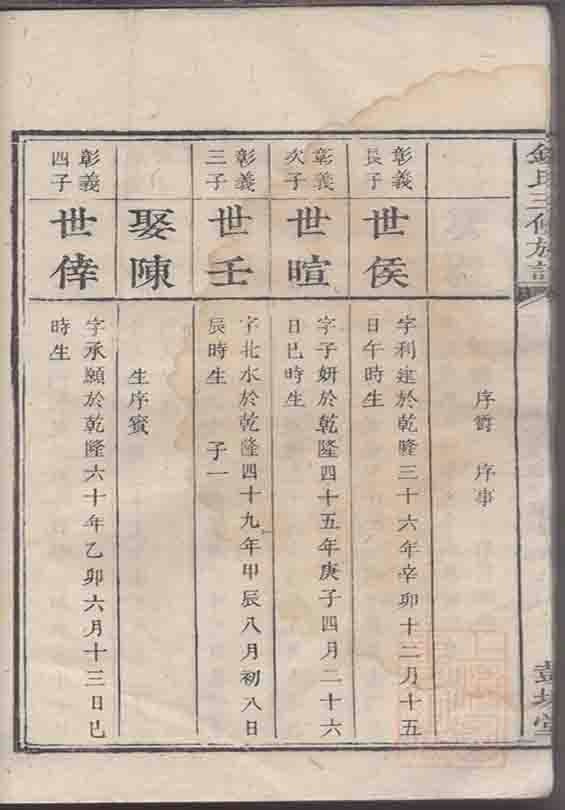 氏三修族譜
堂
序爵 序事
彰義
長子
世侯
字利建於乾隆三十六年辛卯十二月十五
日午時生
彰義
次子
世暄
字子妍於乾隆四十五年庚子四月二十六
日巳時生
彰義
三子
世壬
字北水於乾隆四十九年甲辰八月初八日
辰時生 子一
娶陳
生序賓
彰義
四子
世倖
字承願於乾隆六十年乙卯六月十三日巳
時生